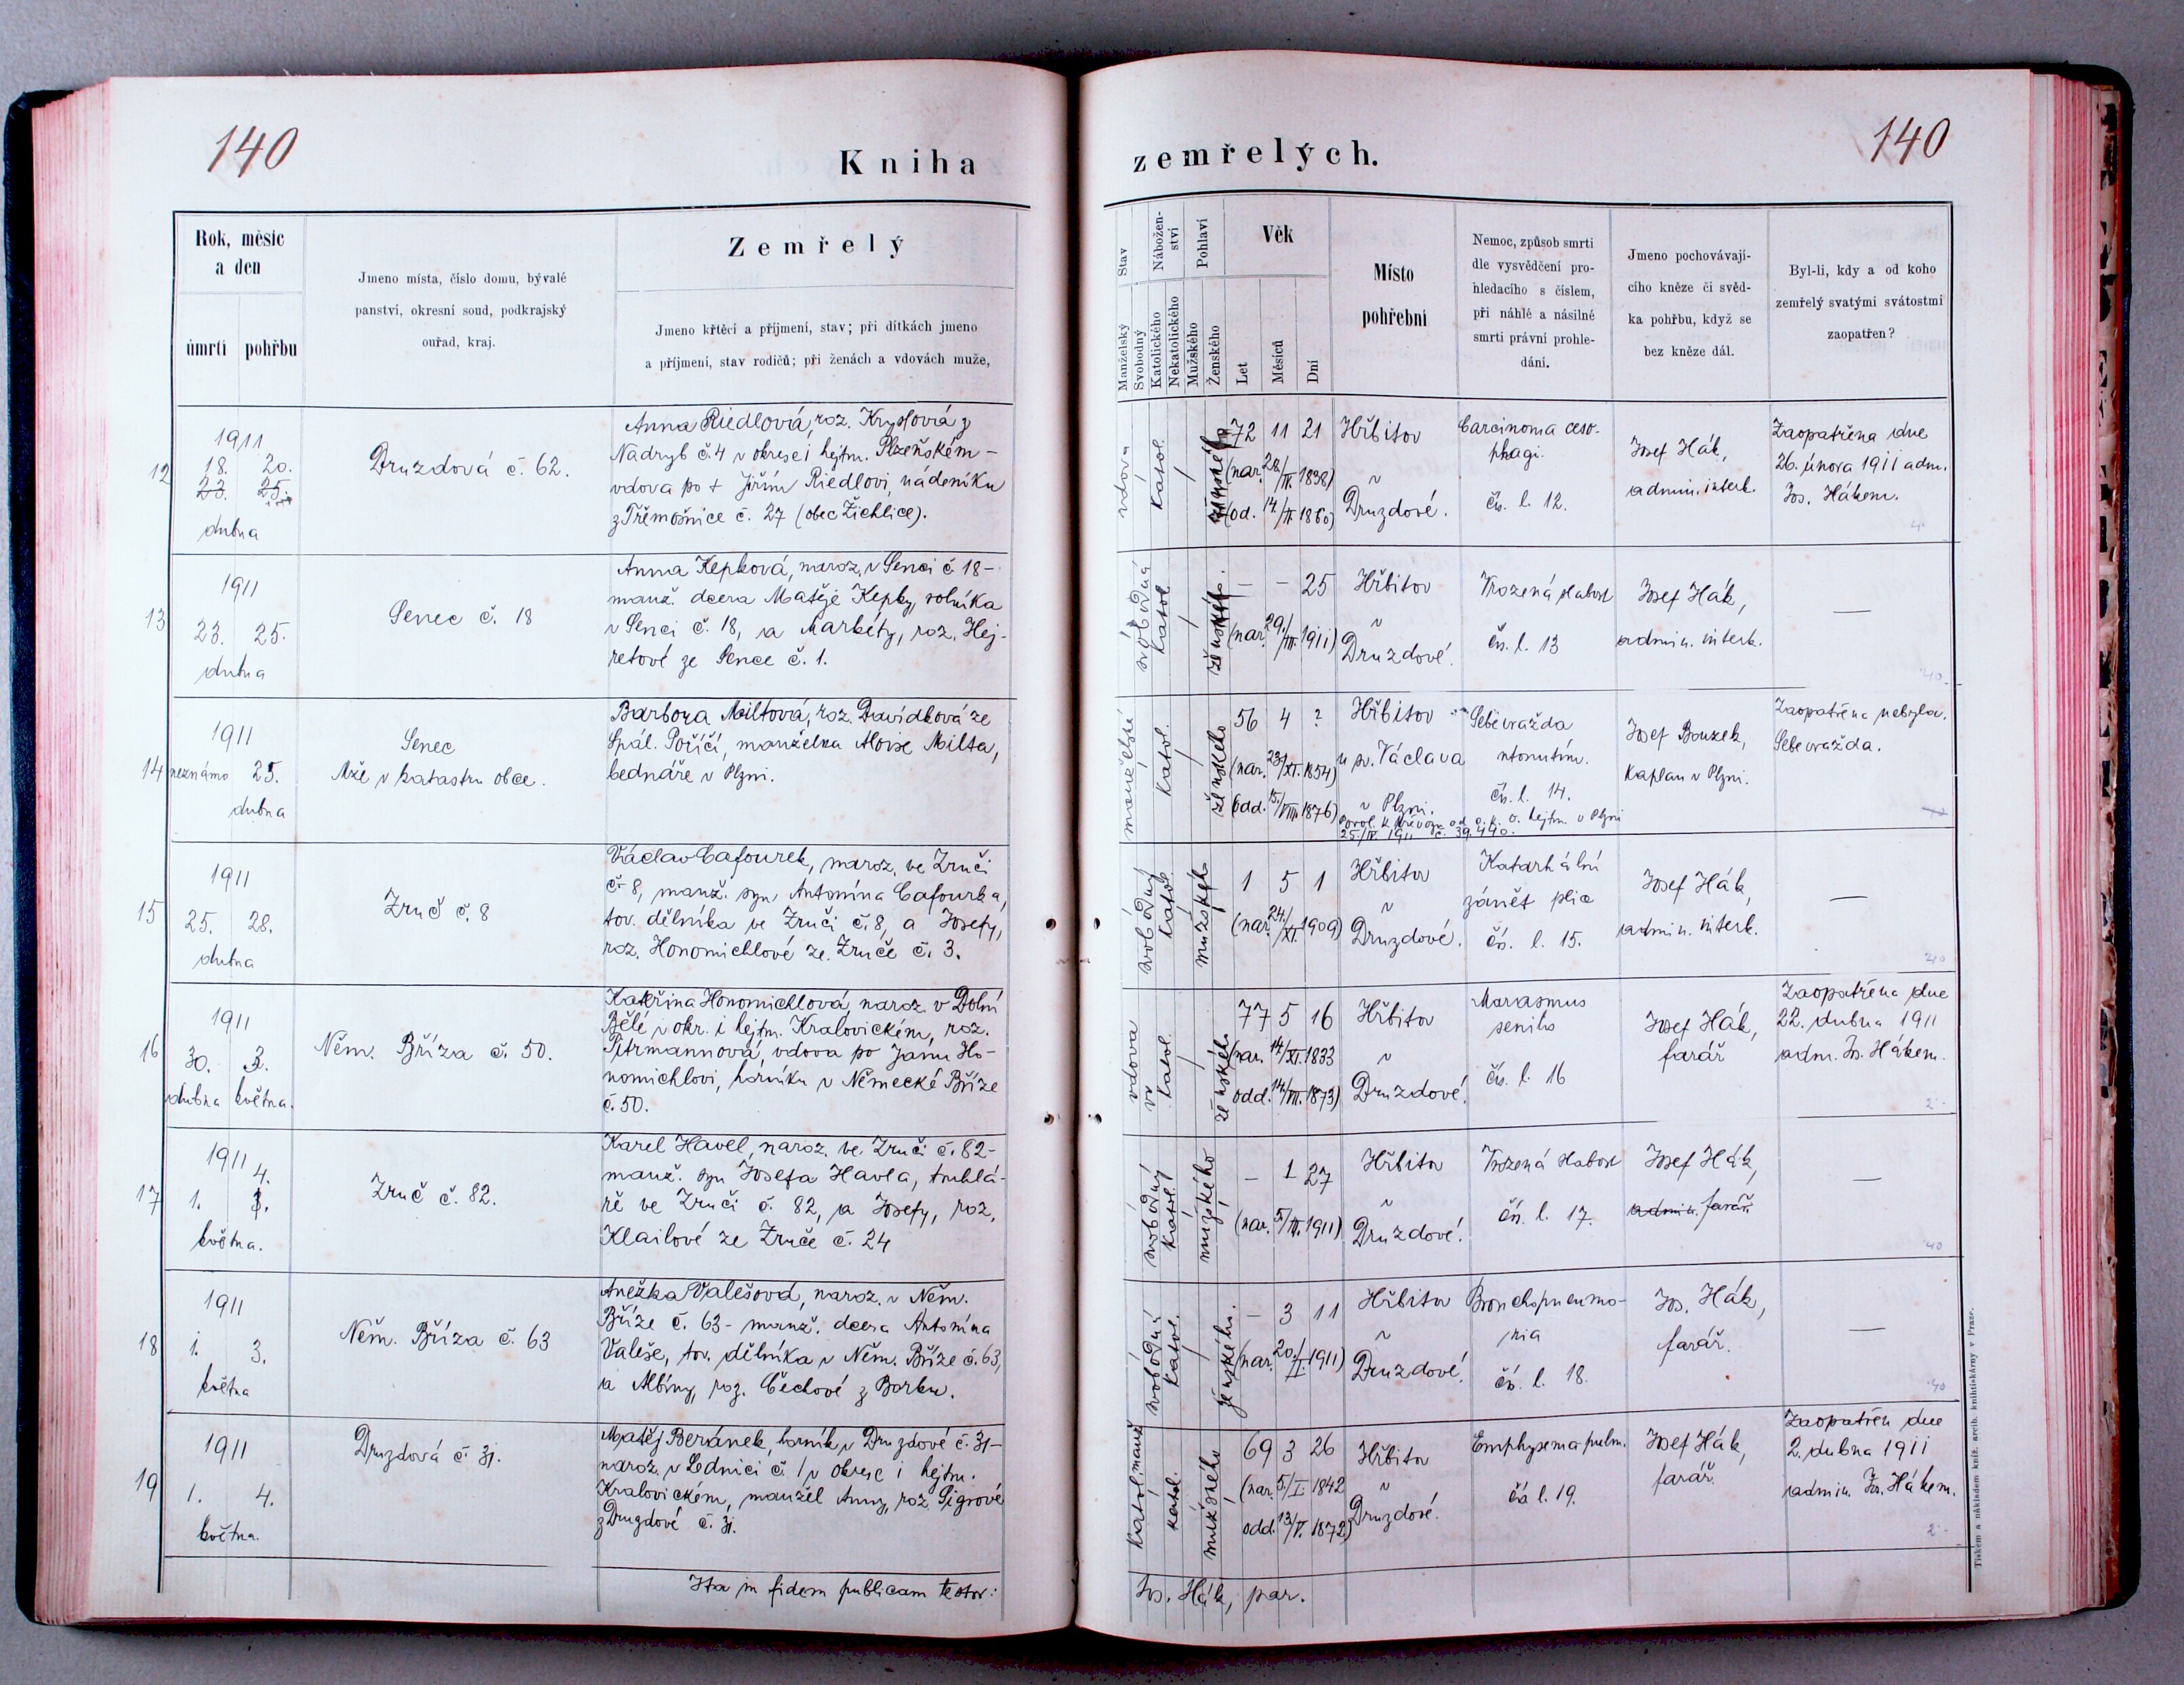 140
Kniha
zemřelých.
140
Rok, měsíc
a den
úmrtí
pohřbu
Jmeno místa, číslo domu, bývalé
panství, okresní soud, podkrajský
ouřad, kraj.
Zemřelý
Jmeno křtěcí a příjmení, stav; při dítkách jmeno
a příjmení, stav rodičů; při ženách a vdovách muže,
Stav
Manželský
Svobodný
Nábožen-
ství
Katolického
Nekatolického
Pohlaví
Mužského
Ženského
Věk
Let
Měsíců
Dní
Místo
pohřební
Nemoc, způsob smrti
dle vysvědčení pro-
hledacího s číslem,
při náhlé a násilné
smrti právní prohle-
dání.
Jmeno pochovávají-
cího kněze či svěd-
ka pohřbu, když se
bez kněze dál.
Byl-li, kdy a od koho
zemřelý svatými svátostmi
zaopatřen?
12
1911
18. 20.
23. 25.
dubna
Druzdová č. 62.
Anna Riedlová, roz. Kryslová z
Nadryb č. 4 v okrese i hejtm. Plzeňském –
vdova po † Jiřím Riedlovi, nádeníku
z Třemošnice č. 27 (obec Žichlice).
vdova
katol.
ženského
72 11 21
(nar. 28./IV. 1838)
(od. 14/II. 1860)
Hřbitov
v
Druzdové.
Carcinoma oeso-
phagi.
čís. l. 12.
Josef Hák,
admin. interk.
Zaopatřena dne
26. února 1911 adm.
Jos. Hákem.
13
1911
23. 25.
dubna
Senec č. 18
Anna Kepková, naroz. v Senci č 18 –
manž. dcera Matěje Kepky, rolníka
v Senci č. 18, a Markéty, roz. Hej-
retové ze Sence č. 1.
svobodná
katol.
ženského.
– – 25
(nar. 29./III. 1911)
Hřbitov
v
Druzdové.
Vrozená slabost
čís. l. 13
Josef Hák,
admin. interk.
—
14
1911
neznámo 25.
dubna
Senec
Mže v katastru obce.
Barbora Miltová, roz. Davídková ze
Spál. Poříčí, manželka Aloise Milta,
bednáře v Plzni.
manželské
katol.
ženského
56 4 ?
(nar. 23/XI. 1854)
(odd. 15./VIII. 1876)
Hřbitov
u sv. Václava
v Plzni.
povol. k převozu od c. k. o. hejtm. v Plzni
25/IV 1911 č. 39.440.
Sebevražda
utonutím.
čís. l. 14.
Josef Bouzek,
kaplan v Plzni.
Zaopatřena nebyla.
Sebevražda.
15
1911
25. 28.
dubna
Zruč č. 8
Václav Cafourek, naroz. ve Zruči
č 8, manž. syn Antonína Cafourka,
tov. dělníka ve Zruči č. 8, a Josefy,
roz. Honomichlové ze Zruče č. 3.
svobodný
katol.
mužského
1 5 1
(nar. 24./XI. 1909)
Hřbitov
v
Druzdové.
Katarhální
zánět plic
čís. l. 15.
Josef Hák,
admin. interk.
—
16
1911
30. 3.
dubna května.
Něm. Bříza č. 50.
Kateřina Honomichlová, naroz. v Dolní
Bělé v okr. i hejtm. Kralovickém, roz.
Pitrmannová, vdova po Janu Ho-
nomichlovi, horníku v Německé Bříze
č. 50.
vdova
katol.
ženského
77 5 16
(nar. 14/XI. 1833
odd. 14/VII. 1873)
Hřbitov
v
Druzdové.
Marasmus
senilis
čís. l. 16
Josef Hák,
farář
Zaopatřena dne
22. dubna 1911
adm. Jos. Hákem.
17
1911
4.
1. 3.
května.
Zruč č. 82.
Karel Havel, naroz. ve Zruči č. 82 –
manž. syn Josefa Havla, truhlá-
ře ve Zruči č. 82, a Josefy, roz.
Klailové ze Zruče č. 24
svobodný
katol.
mužského
– 1 27
(nar. 5/III. 1911)
Hřbitov
v
Druzdové.
Vrozená slabost
čís. l. 17.
Josef Hák,
admin. farář.
—
18
1911
1. 3.
května
Něm. Bříza č. 63
Anežka Valešová, naroz. v Něm.
Bříze č. 63 – manž. dcera Antonína
Valeše, tov. dělníka v Něm. Bříze č. 63,
a Albíny, roz. Čechové z Borku.
svobodná
katol.
ženského.
– 3 11
(nar. 20./I. 1911)
Hřbitov
v
Druzdové.
Bronchopneumo-
nia
čís. l. 18.
Jos. Hák,
farář.
—
19
1911
1. 4.
května.
Druzdová č. 31.
Matěj Beránek, horník v Druzdové č. 31 –
naroz. v Lednici č. 1 v okrese i hejtm.
Kralovickém, manžel Anny, roz. Pigrové
z Druzdové č. 31.
katol.
mužského
69 3 26
(nar. 5/I. 1842
odd. 13/V. 1872)
Hřbitov
v
Druzdové.
Emphysema pulm.
čís l. 19.
Josef Hák,
farář.
Zaopatřen dne
2. dubna 1911
admin. Jos. Hákem.
Ita in fidem publicam testor:
Jos. Hák, par.
Tiskem a nákladem kníž. arcib. knihtiskárny v Praze.